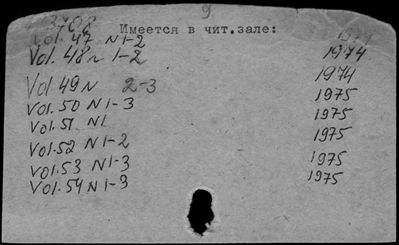 9
3708
Имеется в чит.зале:
Vol. 47 N 1-2 1974
Vol. 48 N 1-2 1974
Vol. 49 N 2-3 1974
Vol. 50 N 1-3 1975
Vol. 51 N1 1975
Vol. 52 N 1-2 1975
Vol. 53 N 1-3 1975
Vol. 54 N 1-3 1975